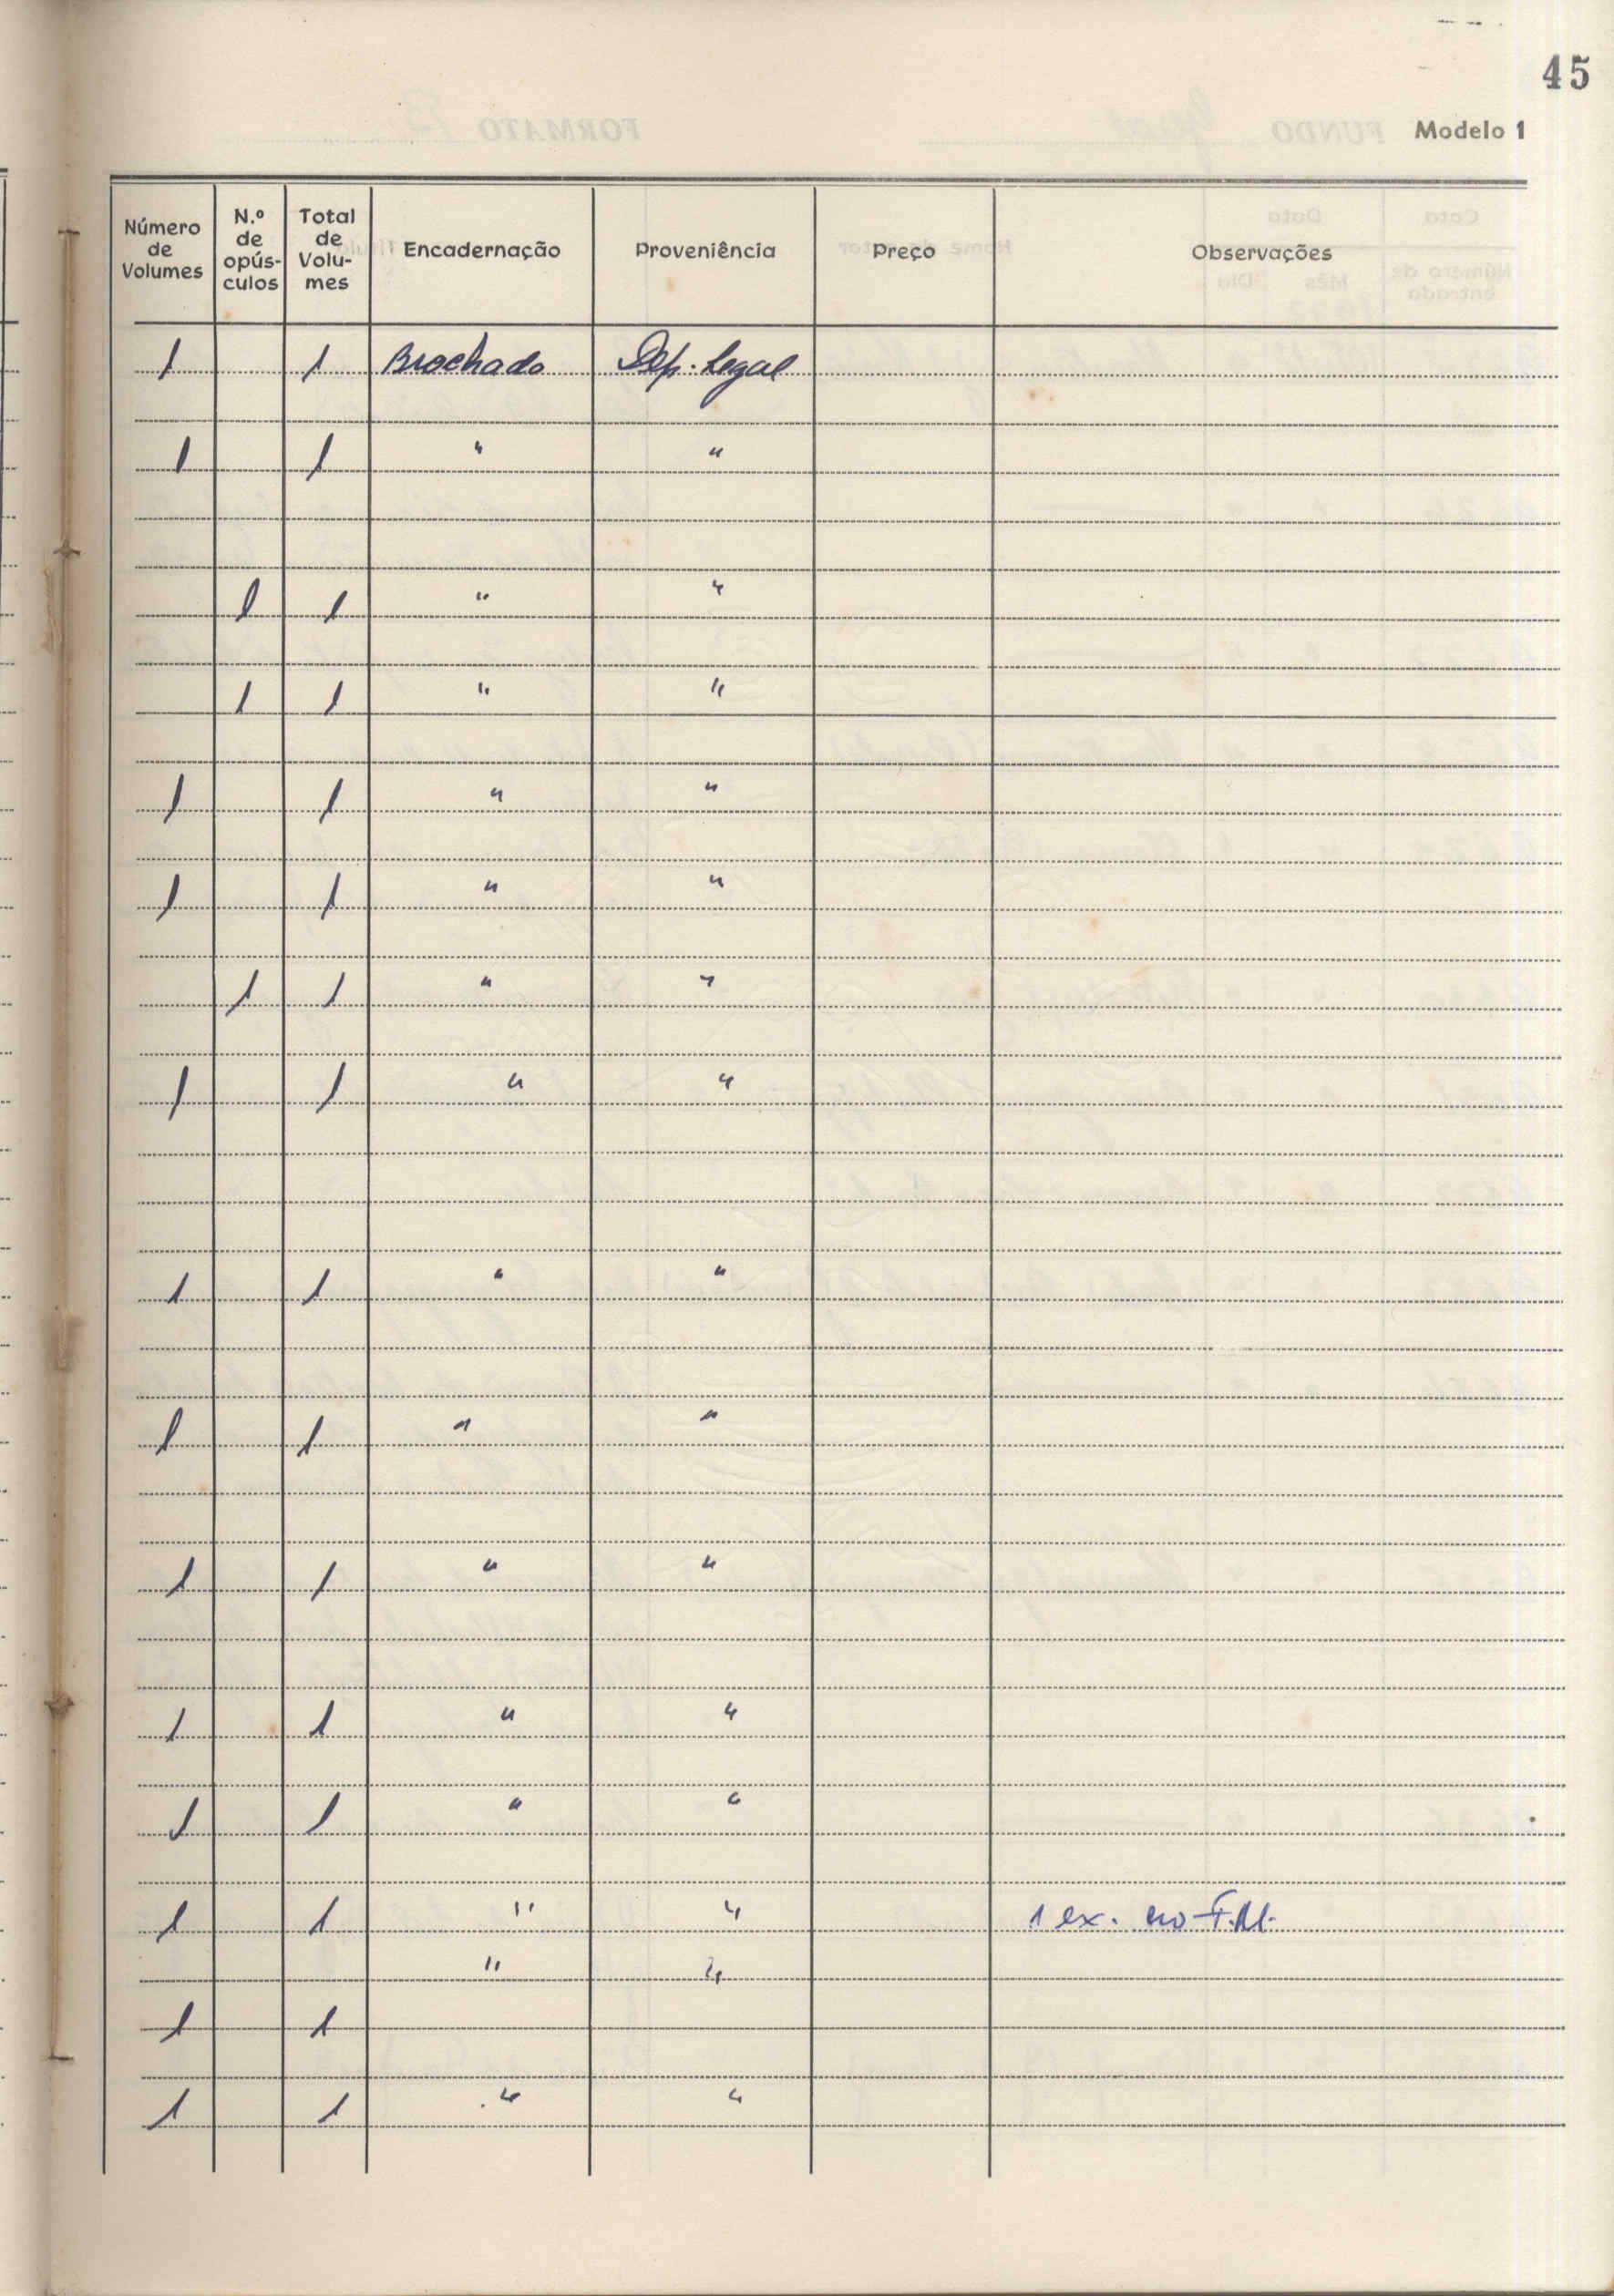 45
Modelo 1
Número de Volumes N.º de opús-culos Total de Volu-mes Encadernação Proveniência Preço Observações
1 1 Brochado Dep. Legal
1 1 " "
1 1 " "
1 1 " "
1 1 " "
1 1 " "
1 1 " "
1 1 " "
1 1 " "
1 1 " "
1 1 " "
1 1 " "
1 1 " "
1 1 " " 1 ex. no F.M.
" "
1 1
1 1 " "